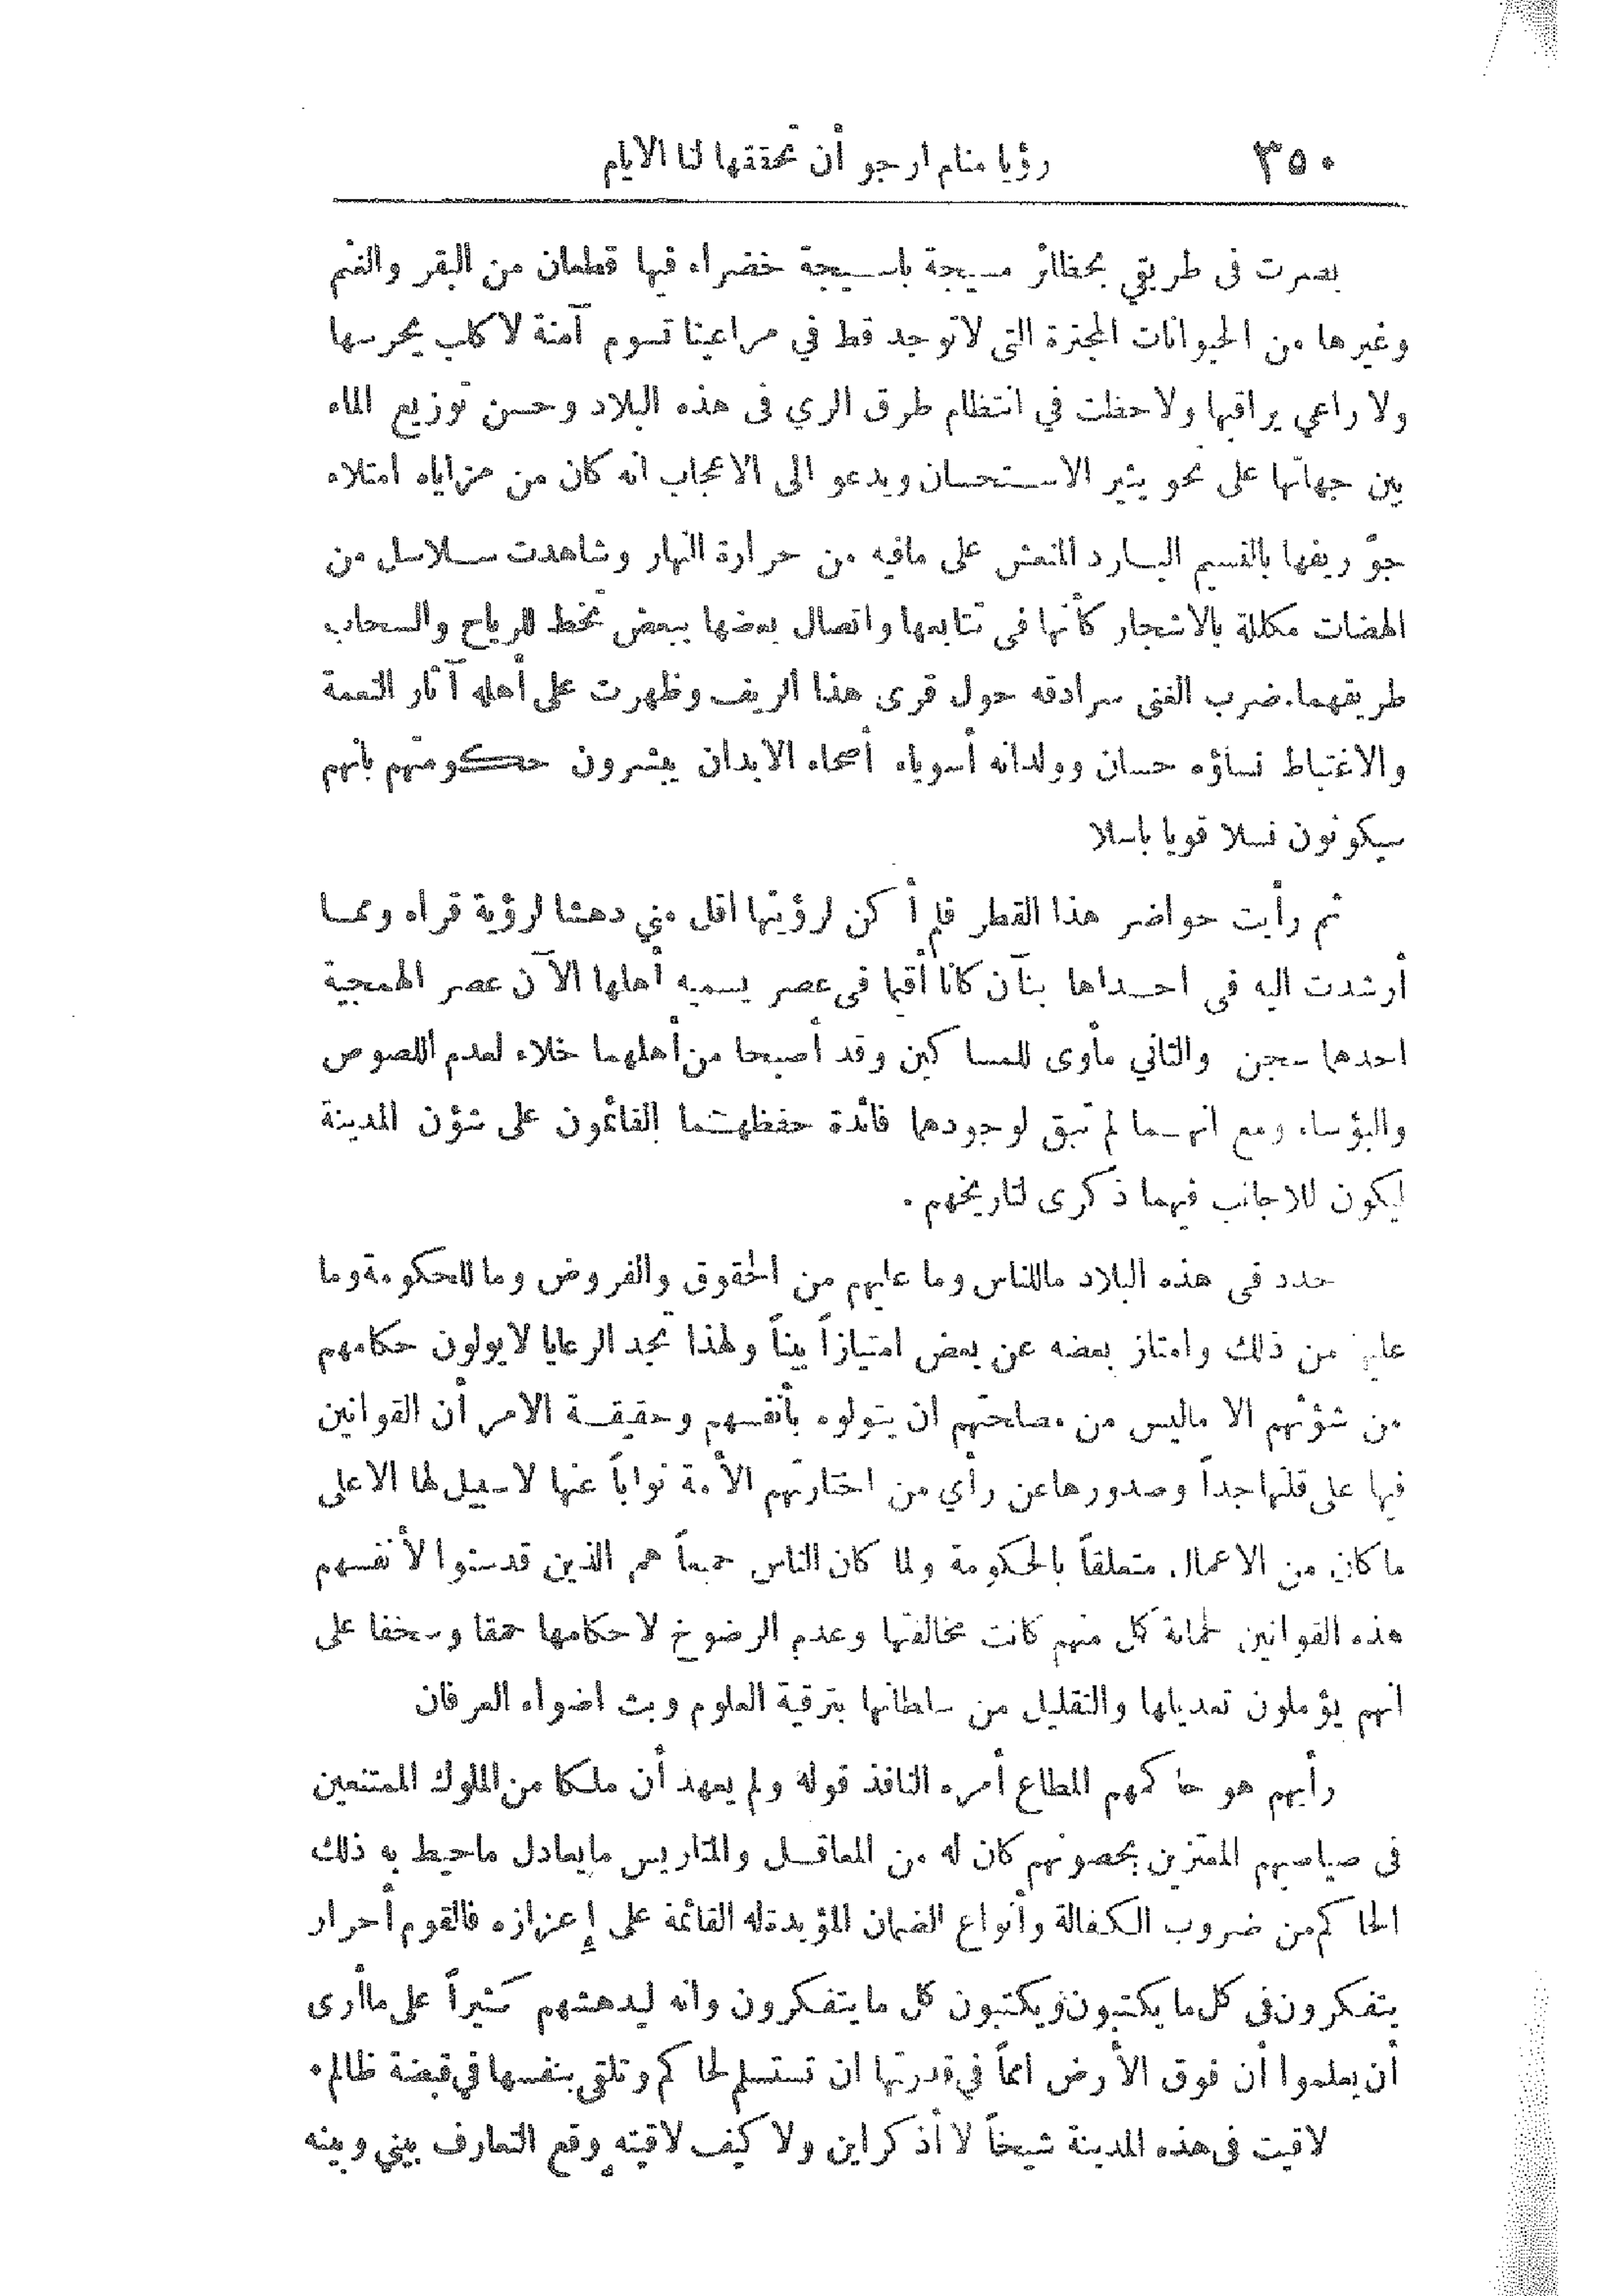 ٣٥٠ رؤيا منام ارجو أن تحققها لنا الايام
بصرت فى طريقي بحظائر مسيجة باسيجة خضراء فيها قطعان من البقر والغنم
وغيرها من الحيوانات المجترة التى لاتوجد قط في مراعينا تسوم آمنة لا كلب يحرسها
ولا راعي يراقبها ولاحظت في انتظام طرق الري فى هذه البلاد وحسن توزيع الماء
بين جهاتها على نحو يثير الاستحسان ويدعو الى الاعجاب انه كان من مزاياه امتلاء
جوّ ريفها بالنسيم البارد المنعش على مافيه من حرارة النهار وشاهدت سلاسل من
الهضات مكللة بالاشجار كأنها فى تتابعها واتصال بعضها ببعض تخط للرياح والسحاب
طريقهما. ضرب الغنى سرادقه حول قرى هذا الريف وظهرت على أهله آثار النعمة
والاغتباط نساؤه حسان وولدانه أسوياء أصحاء الابدان يبشرون حكومتهم بأنهم
سيكونون نسلا قويا باسلا
ثم رأيت حواضر هذا القطر فلم أكن لرؤيتها اقل مني دهشا لرؤية قراه ومما
أرشدت اليه فى احداها بنآن كانا أقيما فى عصر يسميه أهلها الآن عصر الهمجية
احدها سجن والثاني مأوى للمساكين وقد أصبحا من أهلهما خلاء لعدم اللصوص
والبؤساء ومع انهما لم تبق لوجودهما فائدة حفظهما القائمون على شؤن المدينة
ليكون للاجانب فيهما ذكرى لتاريخهم .
حدد فى هذه البلاد ماللناس وما عليهم من الحقوق والفروض وما للحكومة وما
عليها من ذلك وامتاز بعضه عن بعض امتيازاً بيناً ولهذا تجد الرعايا لايولون حكامهم
من شؤنهم الا ماليس من مصلحتهم ان يتولوه بأنفسهم وحقيقة الامر أن القوانين
فيها على قلتها جداً وصدورها عن رأي من اختارتهم الأمة نواباً عنها لاسبيل لها الا على
ما كان من الاعمال متعلقاً بالحكومة ولما كان الناس جميعاً هم الذين قد سنوا لأنفسهم
هذه القوانين لحماية كل منهم كانت مخالفتها وعدم الرضوخ لاحكامها حمقا وسخفا على
انهم يؤملون تعديلها والتقليل من سلطانها بترقية العلوم وبث اضواء العرفان
رأيهم هو حاكمهم المطاع أمره النافذ قوله ولم يعهد أن ملكا من الملوك الممتنعين
فى صياصيهم المعتزين بحصونهم كان له من المعاقل والمتاريس مايعادل ماحيط به ذلك
الحاكم من ضروب الكفالة وأنواع الضمان المؤيدة له القائمة على إعزازه فالقوم أحرار
يتفكرون فى كل ما يكتبون ويكتبون كل ما يتفكرون وانه ليدهشهم كثيراً على ماأرى
أن يعلموا أن فوق الأرض امماً في قدرتها ان تستسلم لحاكم وتلقى بنفسها في قبضة ظالم .
لاقيت فى هذه المدينة شيخاً لا أذكر اين ولا كيف لاقيته وقع التعارف بيني وبينه